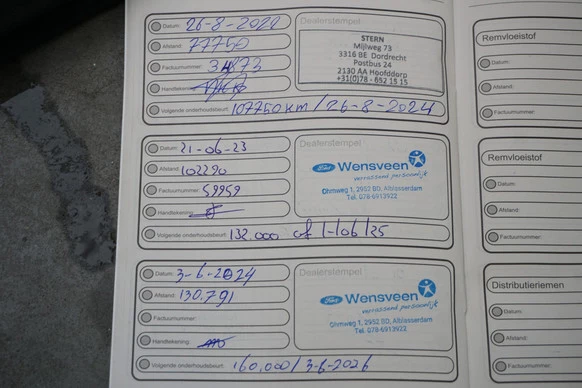 Datum: 26-8-2020
Afstand: 77750
Factuurnummer: 34173
Handtekening:
Volgende onderhoudsbeurt: 107750 km / 26-8-2024
Dealerstempel
STERN
Mijlweg 73
3316 BE Dordrecht
Postbus 24
2130 AA Hoofddorp
+31(0)78 - 652 15 15
Datum: 21-06-23
Afstand: 102290
Factuurnummer: 59959
Handtekening:
Volgende onderhoudsbeurt: 132.000 of 1-/06/25
Dealerstempel
Ford Wensveen
verrassend persoonlijk
Ohmweg 1, 2952 BD, Alblasserdam
Tel. 078-6913922
Datum: 3-6-2024
Afstand: 130.791
Factuurnummer:
Handtekening:
Volgende onderhoudsbeurt: 160.000 / 3-6-2026
Dealerstempel
Ford Wensveen
verrassend persoonlijk
Ohmweg 1, 2952 BD, Alblasserdam
Tel. 078-6913922
Remvloeistof
Datum:
Afstand:
Factuurnummer:
Remvloeistof
Datum:
Afstand:
Factuurnummer:
Distributieriemen
Datum:
Afstand:
Factuurnummer: